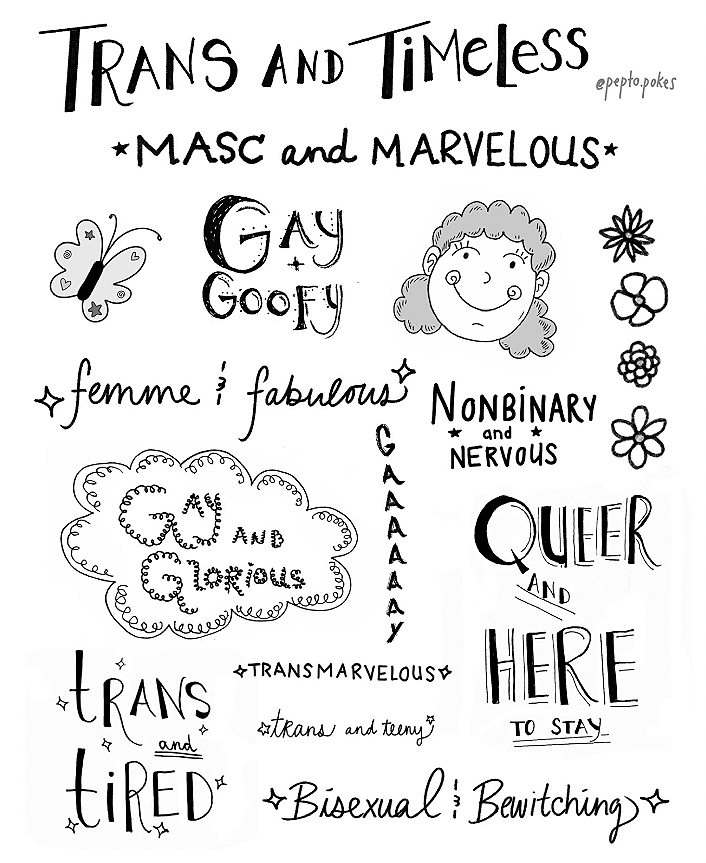 TRANS AND TiMeLess
@pepto.pokes
MASC and MARVELOUS
GAY
+
GOOFY
femme & fabulous
NONBiNARY
and
NERVOUS
GAAAAAAAY
GAY AND
GLORiOUS
QUEER
AND
HERE
TO STAY
TRANSMARVELOUS
trans and teeny
tRANS
and
tiRED
Bisexual & Bewitching